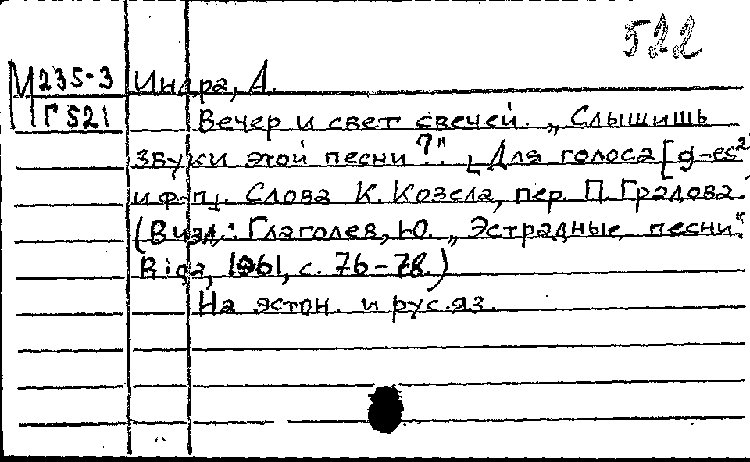 522
М 235-3 Индра, А.
Г 521 Вечер и свет свечей. „Слышишь
звуки этой песни?". Для голоса [g-es²]
и ф-п. Слова К. Козела, пер. П. Градова.
(В изд.: Глаголев, Ю. „Эстрадные песни".
Riga, 1961, с. 76-78.)
На эстон. и рус. яз.